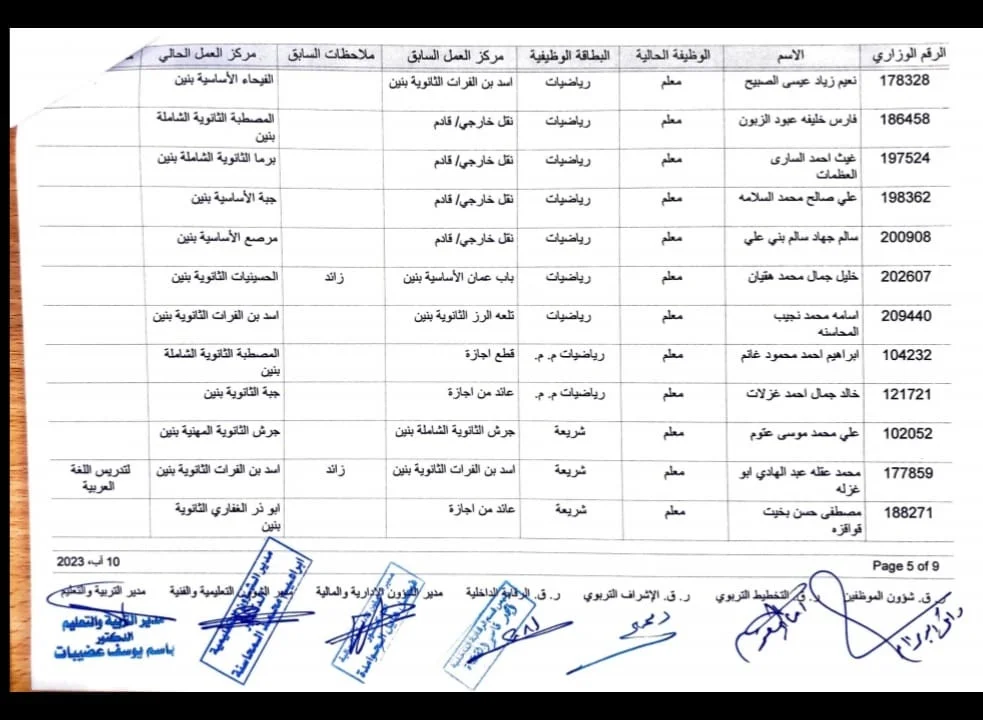 الرقم الوزاري الاسم الوظيفة الحالية البطاقة الوظيفية مركز العمل السابق ملاحظات السابق مركز العمل الحالي
178328 نعيم زياد عيسى الصبيح معلم رياضيات اسد بن الفرات الثانوية بنين الفيحاء الأساسية بنين
186458 فارس خليفه عبود الزبون معلم رياضيات نقل خارجي/ قادم المصطبة الثانوية الشاملة
بنين
197524 غيث احمد السارى معلم رياضيات نقل خارجي/ قادم برما الثانوية الشاملة بنين
العظمات
198362 علي صالح محمد السلامه معلم رياضيات نقل خارجي/ قادم جبة الأساسية بنين
200908 سالم جهاد سالم بني علي معلم رياضيات نقل خارجي/ قادم مرصع الأساسية بنين
202607 خليل جمال محمد هقيان معلم رياضيات باب عمان الأساسية بنين زائد الحسينيات الثانوية بنين
209440 اسامه محمد نجيب معلم رياضيات تلعه الرز الثانوية بنين اسد بن الفرات الثانوية بنين
المحاسنه
104232 ابراهيم احمد محمود غانم معلم رياضيات م. م. قطع اجازة المصطبة الثانوية الشاملة
بنين
121721 خالد جمال احمد غزلات معلم رياضيات م. م. عائد من اجازة جبة الثانوية بنين
102052 علي محمد موسى عتوم معلم شريعة جرش الثانوية الشاملة بنين جرش الثانوية المهنية بنين
177859 محمد عقله عبد الهادي ابو معلم شريعة اسد بن الفرات الثانوية بنين زائد اسد بن الفرات الثانوية بنين لتدريس اللغة
غزله العربية
188271 مصطفى حسن بخيت معلم شريعة عائد من اجازة ابو ذر الغفاري الثانوية
قواقزه بنين
Page 5 of 9 10 آب، 2023
ر. ق. شؤون الموظفين ر. ق. التخطيط التربوي ر. ق. الإشراف التربوي ر. ق. الرقابة الداخلية مدير الشؤون الإدارية والمالية مدير الشؤون التعليمية والفنية مدير التربية والتعليم
مدير التربية والتعليم
الدكتور
باسم يوسف عضيبات